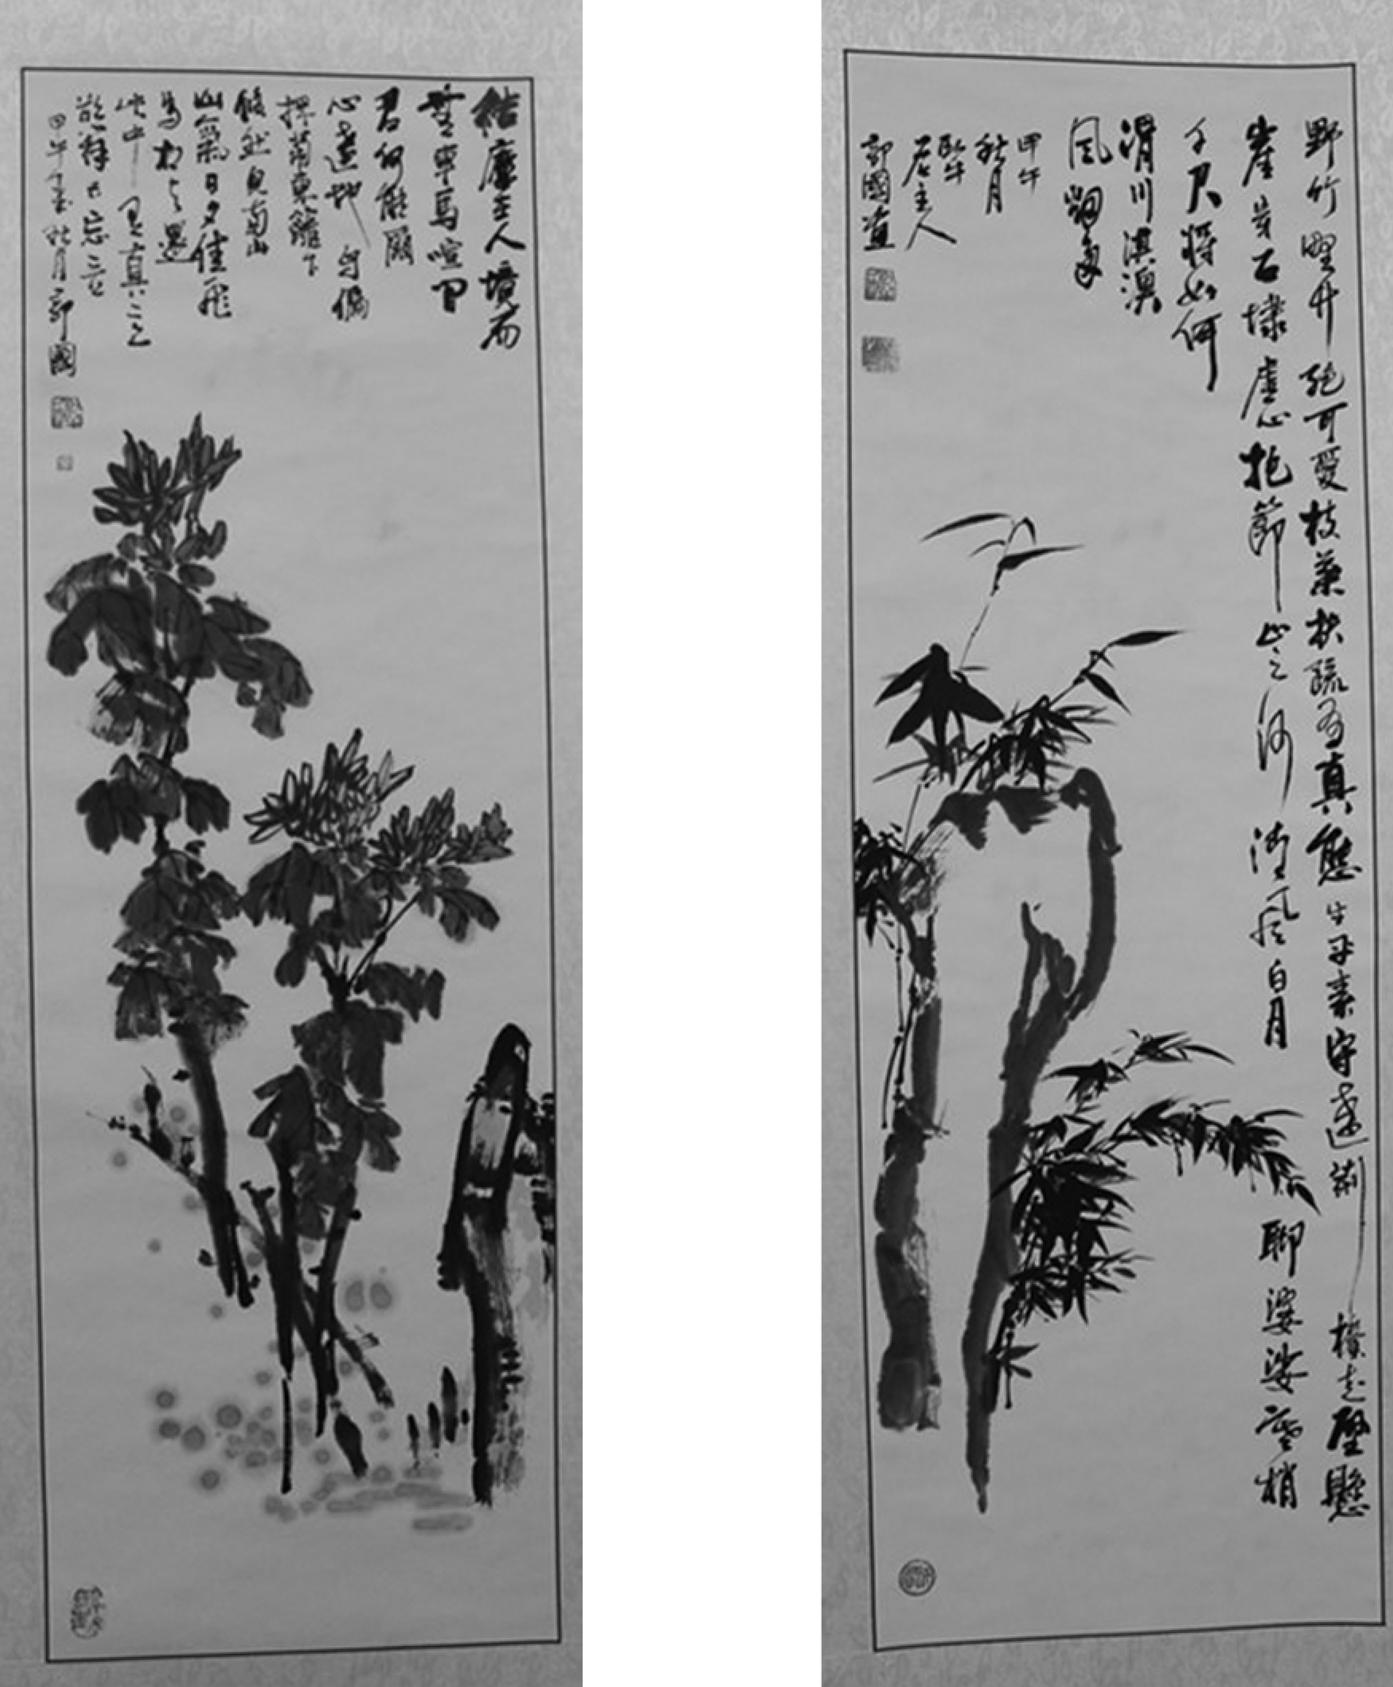 結廬在人境而
無車馬喧問
君何能爾
心遠地自偏
採菊東籬下
悠然見南山
山氣日夕佳飛
鳥相与還
此中有真意
欲辯已忘言
甲午年秋月郭國
野竹野竹絕可愛枝葉扶疏有真態生平素守遠荊榛走壁懸
崖穿石罅虛心抱節山之河清風白月聊婆娑寒梢
千尺將如何
渭川淇澳
風煙多
甲午
秋月
臥牛
居主人
郭國畫